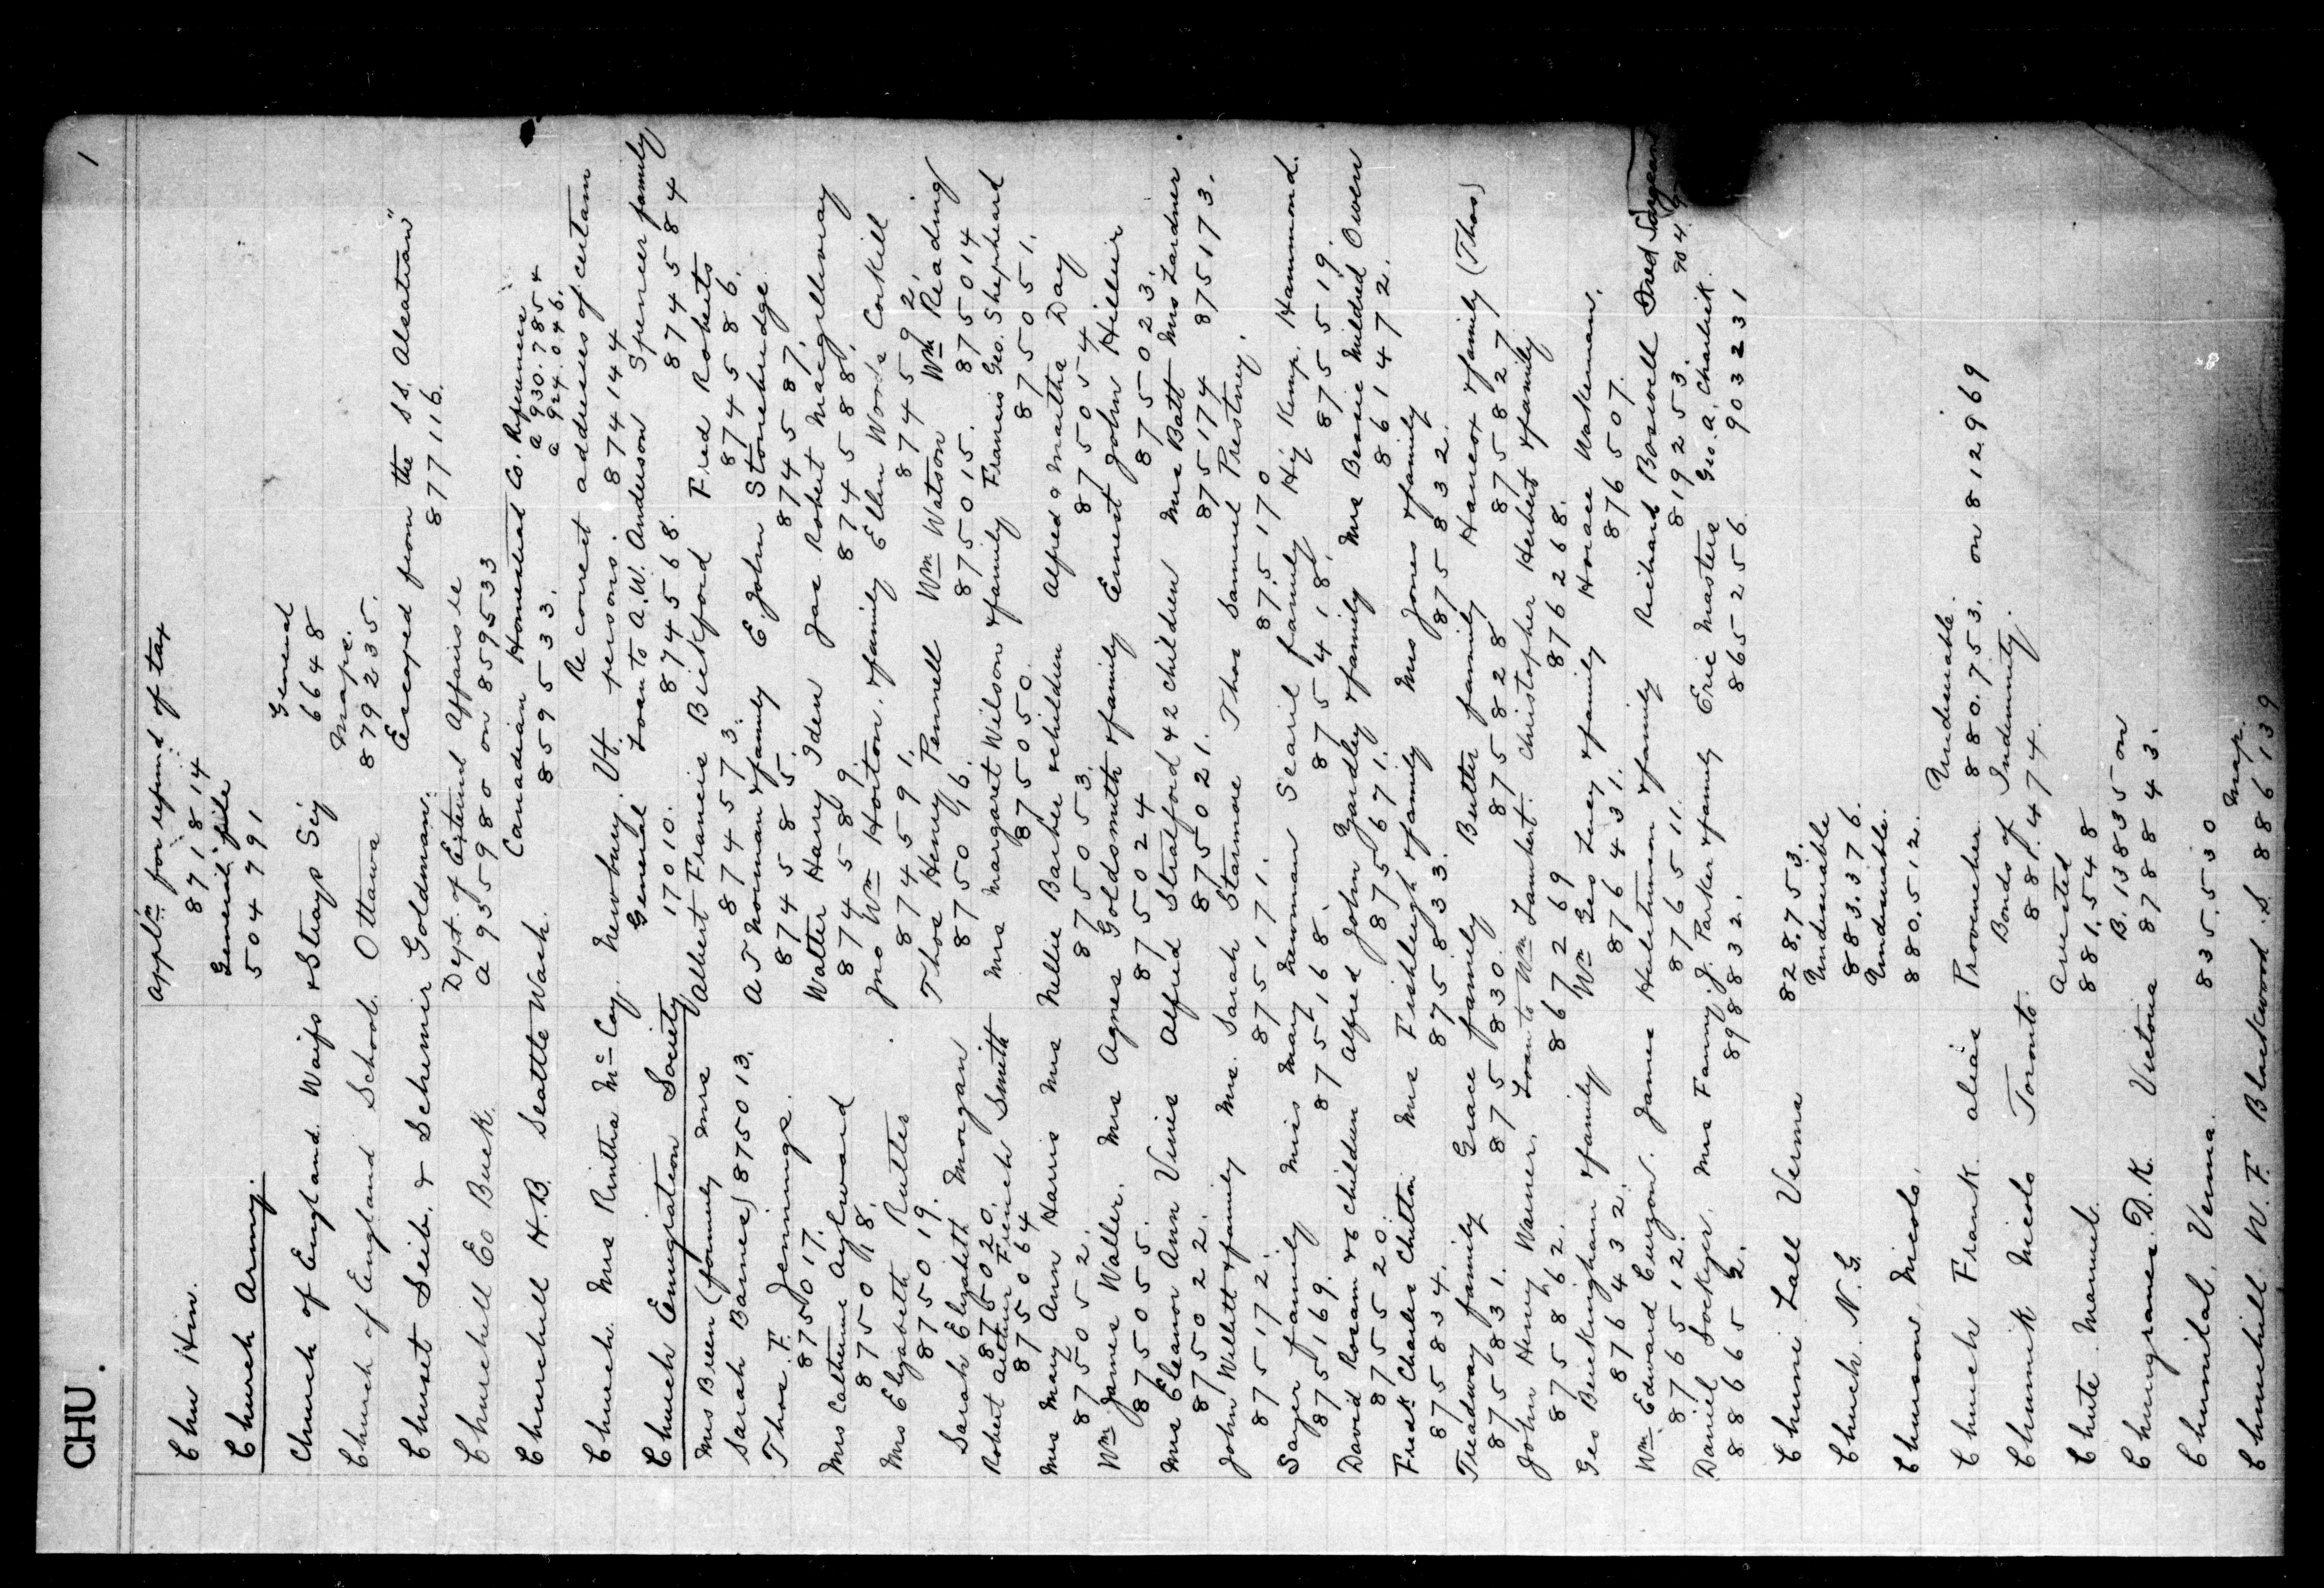 CHU.
1
Chu Hin. Applcn for refund of tax
871814
Church Army. General file
504791
Church of England Waifs & Strays Scy General
6648
Church of England School. Ottawa Maps.
879235.
Chuset Seib, & Schemir Goldman. Escaped from the SS. Alsatian"
877116.
Churchill Ed Buck. Dept. of External Affairs re
a 935980 on 859533
Churchill H.B. Seattle Wash. Canadian Homestead Co. Refumes
859533. a 930.7854
a 924.046.
Church. Mrs Rintha McCay. Newbury. Vt. Re correct addresses of certain
persons. 874144
Church Emigration Society General Loan to A.W. Anderson Spencer family
17010. 874568. 874584
Mrs Breen (formerly Mrs Albert Francis Bickford Fred Roberts
Sarah Barnes) 875013. 874573. 874586.
Thos. F. Jennings. A J Norman & family E. John Stonebridge
875017. 874585. 874587.
Mrs Catherine Aylward Walter Harry Iden Jas Robert Macgillivray
875018. 874589. 874588.
Mrs Elizabeth Rutter Jno Wm Horton. & family Ellen Woods Corkill
875019. 874591. 874592.
Sarah Elizabeth Morgan Thos Henry Pennell Wm Watson Wm Reading
875020. 875016. 875015. 875014
Robert Arthur French Smith Mrs Margaret Wilson & family Francis Geo. Shepheard
875064 875050. 875051.
Mrs Mary Ann Harris Mrs Nellie Barker & children Alfred & Martha Day
875052. 875053. 875054
Wm James Waller. Mrs Agnes Goldsmith & family Ernest John Hillier
875055. 875024 875023.
Mrs Eleanor Ann Vinie Alfred Stratford & 2 children Mrs Batt Mrs Lardner
875022. 875021. 875174 875173.
John Willett & family Mrs. Sarah Starmore Thos Samuel Prestney.
875172. 875171. 875170
Sayer family Miss Mary Newman Searil family Hy Kemp. Hammond.
875169. 875168. 875418. 875519.
David Rosam & 6 children Alfred John Yardley & family Mrs Bessie Mildred Owen
875520. 875671. 861472.
Fredk Charles Chitton Mrs Fishleigh & family Mrs Jones & family
875834. 875833. 875832.
Treadway family Grace family Butter family Hancox & family (Thos)
875831. 875830. 875828 875827
John Henry Warner. Loan to Wm Lambert. Christopher Herbert & family
875862. 867269 876268.
Geo Beckingham & family Wm Geo Levey & family Horace Wakeman.
876432. 876431. 876507.
Wm. Edward Curzon. James Hulatinman & family Richard Boswell Fred Sargeant
876512. 876511. 819253. 904
Daniel Lockyer. Mrs Fanny J. Parker & family Eric Masters Geo. A. Charlick.
886652. 898832. 8652556 903231
Chuni Lall Verma 828.753.
Chuch. N. G. Undesirable
883.376.
Churson, Nicolo, Undesirable.
880.512.
Chuch Frank. alias Provencher. Undesirable.
880.753. on 812.969
Chumik Nicolo Toronto. Bonds of Indemnity.
881.474.
Chute. Manuel. Arrested
881.548
Chungranes. D.K. Victoria B. 13835 on
878843.
Chunilal, Verma. 835.530
Churchill W. F. Blackwood. S. Map.
886139